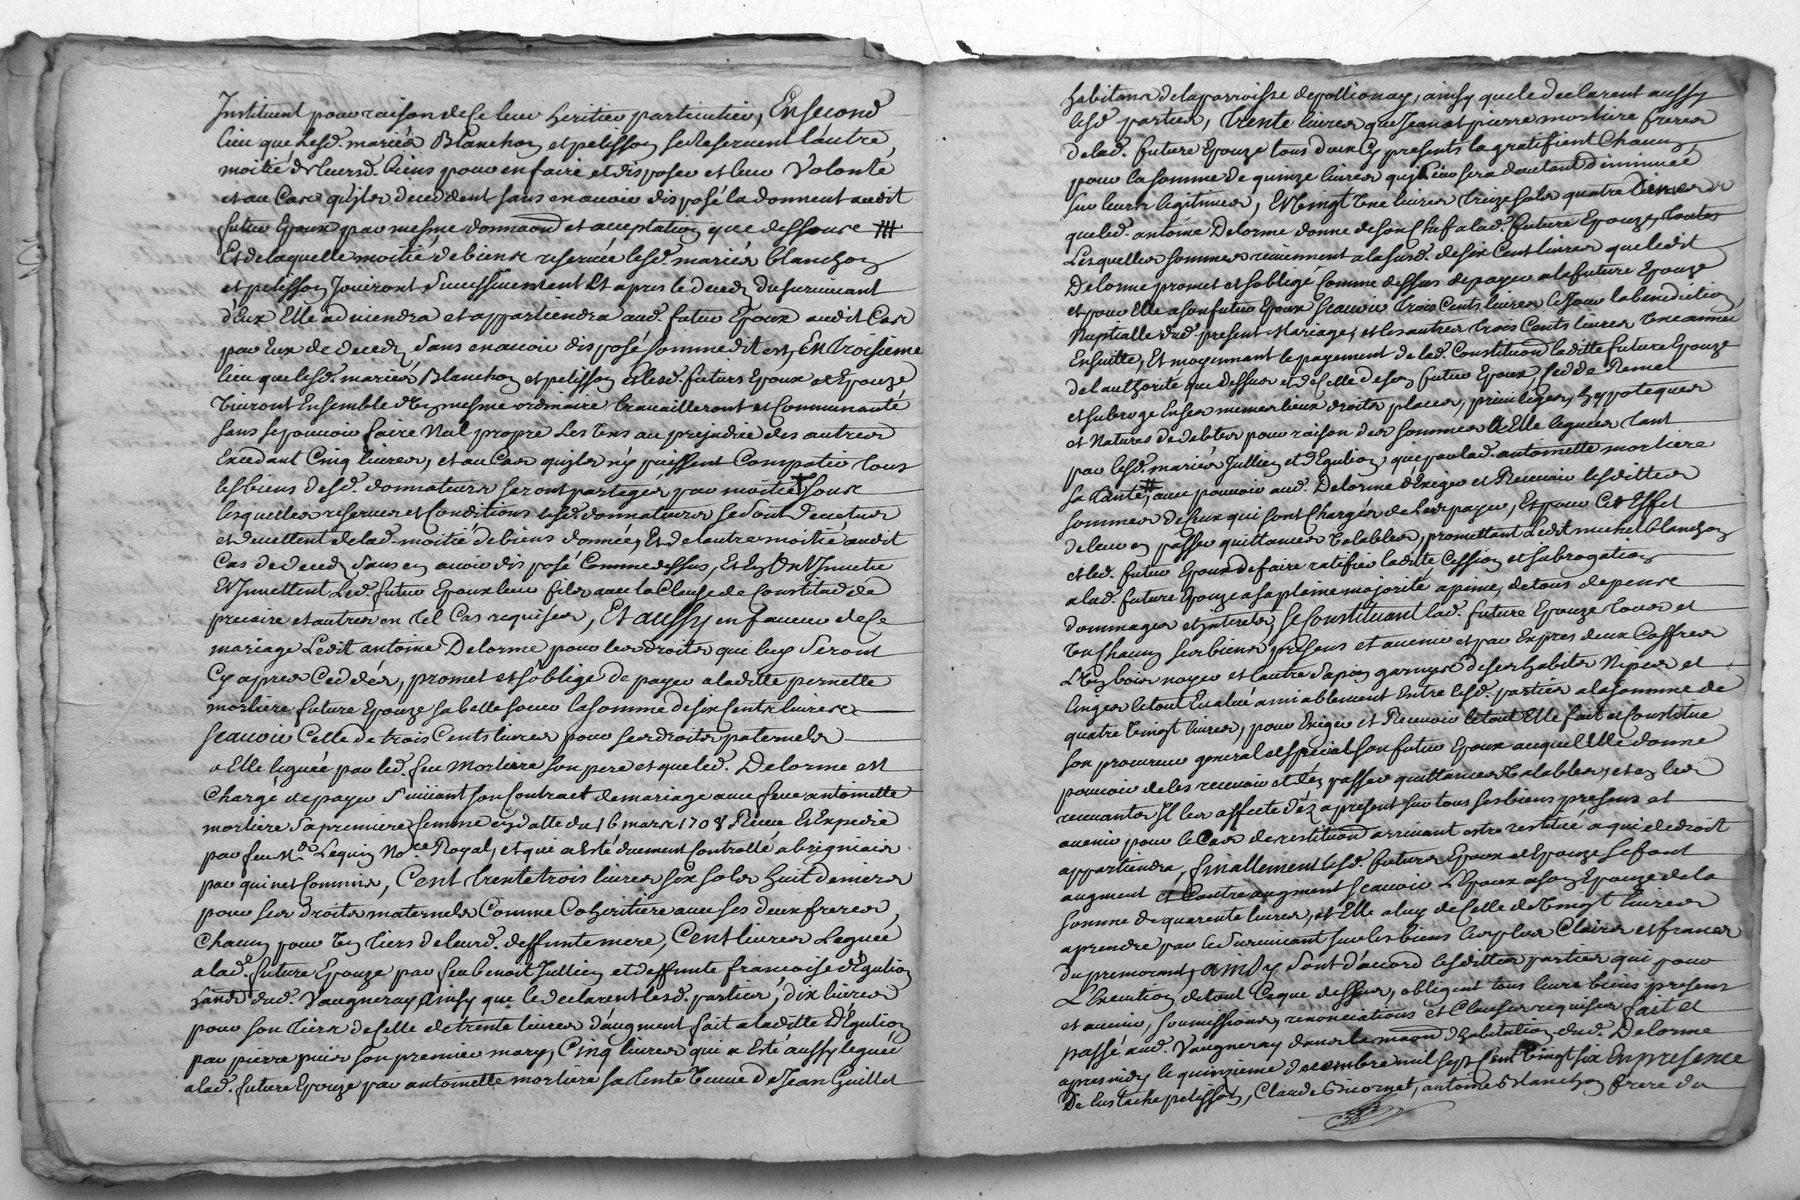 Instituent pour raison de Ce leur heritier particulier, En second
lieu que Lesd. mariés Blanchon et pelisson se Reservent L'autre
moitié de leursd. biens pour en faire et disposer et leur Volonté
et au Cas qu'ils decedent sans en avoir disposé la donnent audit
futur Epoux par mesme donnaon et acceptation que dessous
Et de laquelle moitié de biens reservée lesd. mariés blanchon
et pelisson Jouiront Sucessivement Et apres le deced du survivant
d'Eux Elle adviendra et appartiendra aud. futur Epoux audit Cas
par Eux de deced Sans en avoir disposé Comme dit est, En Troisieme
lieu que lesd. mariés Blanchon et pelisson et lesd. futurs Epoux et Epouze
Vivront Ensemble d'Un mesme ordinaire travailleront et Communauté
sans se pouvoir faire Nul propre Les Uns au prejudice des autres
Excedant Cinq livres, et au Cas qu'ils n'y puissent Compatir tous
les biens desd. donnateurs seront partagés par moitié Sous
lesquelles reserves et Conditions lesd. donnateurs se sont Devetus
et devettent de lad. moitié de biens donnée, Et de l'autre moitié audit
Cas de deced Sans en avoir disposé Comme dessus, Et En ont Investu
Et Investtent Led. futur Epoux leur fils avec la Clause de Constitud de
precaire et autres en tel Cas requises, Et aussy en faveur de Ce
mariage Ledit antoine Delorme pour les droits que luy Seront
Cy apres Ceddés, promet et s'oblige de payer a ladille pernette
morliere future Epouze sa belle soeur la somme de six Cents livres
Scavoir Celle de trois Cents livres pour ses droits paternels
a Elle leguée par led. feu Morliere son pere et que led. Delorme est
Chargé de payer Suivant son Contract de mariage avec feue antoinette
morliere Sa premiere femme en datte du 16 mars 1708 Receu Et Expedié
par feu Me. Lequin No.re Royal, et qui a Esté duement Controllé a brignais
par quinet Commis, Cent trente trois livres six sols huit deniers
pour ses droits maternels Comme Coheritiere avec ses deux freres,
Chacun pour Un tiers de leurd. deffunte mere, Cent livres Leguée
a lad. future Epouze par feu benoit Jullien et deffunte francoise d'Egulion
dud. Vaugneray, ainsy que le declarent lesd. parties, dix livres
pour son tiers de Celle de trente livres d'augment fait a laditte d'Egulion
par pierre puis son premier mary, Cinq livres qui a Esté aussy leguée
a lad. future Epouze par antoinette morliere sa tente Veuve de Jean Guillot
habitans de la parroisse de pollionay, ainsy que le declarent aussy
lesd. parties, Trente livres que Jean et pierre morliere freres
de lad. future Epouze tous deux Cy presents la gratifient Chacun
pour la somme de quinze livres qui sera d'autant diminuée
sur leurs legitimes, Et Vingt Une livres Treize sols quatre deniers
que led. antoine Delorme donne de son Cheff a lad. future Epouze, toutes
Lesquelles sommes reviennent a la susd. de six Cent livres que ledit
Delorme promet et s'oblige Comme dessus de payer a la future Epouze
et pour Elle a son futur Epoux Scavoir trois Cents livres le Jour la benediction
Nuptialle dud. present Mariage, et les autres trois Cents livres Une année
Ensuitte, Et moyennant le payement de lad. Constituon laditte future Epouze
de l'authorité que dessus et de Celle de son futur Epoux, Cedde Remet
et subroge En ses mesmes lieux droits places, privileges, hypoteques
et Natures de debtes pour raison des sommes a Elle leguées tant
par lesd. mariés Jullien et d'Egulion, que par lad. antoinette morliere
sa tante, avec pouvoir aud. Delorme d'Exiger et Recevoir lesdittes
sommes de Ceux qui sont Chargés de Les payer, Et pour Cet Effet
de leur en passer quittances Valables, promettant Ledit michel blanchon
et led. futur Epoux de faire ratifier laditte Cession et subrogation
a lad. future Epouze a sa pleine majorité a peine, de tous depens
dommages et interets, se Constituant lad. future Epouze tous et
Un Chacun ses biens presens et avenir et par Expres deux Coffres
L'un bois noyer et L'autre Sapin garnys de ses habits Nipes et
linges le tout Evalué amiablement Entre lesd. parties a la somme de
quatre Vingt livres, pour Exiger et Recevoir le tout Elle fait et Constitue
son procureur general et special son futur Epoux auquel Elle donne
pouvoir de les recevoir et d'en passer quittances Valables, et en les
recevants Il les affecte dés a present sur tous ses biens presens et
avenir pour le Cas de restituon arrivant estre restitué a qui de droit
appartiendra, finallement lesd. futurs Epoux et Epouze se font
augment et Contre augment Scavoir L'Epoux a son Epouze de la
somme de quarente livres, et Elle a luy de Celle de Vingt livres
a prendre par le survivant sur les biens les plus Clairs et francs
du premourant, ainsy Sont d'acord lesdittes parties qui pour
L'Execution de tout Ce que dessus, obligent tous leurs biens presens
et avenir, soumissions, renonciations et Clauses requises fait et
passé aud. Vaugneray dans la maon d'habitation dud. Delorme
apres midy le quinzieme decembre mil sept Cent Vingt six En presence
De Eustache pelisson, Claude Bicornet, antoine Blanchon frere du